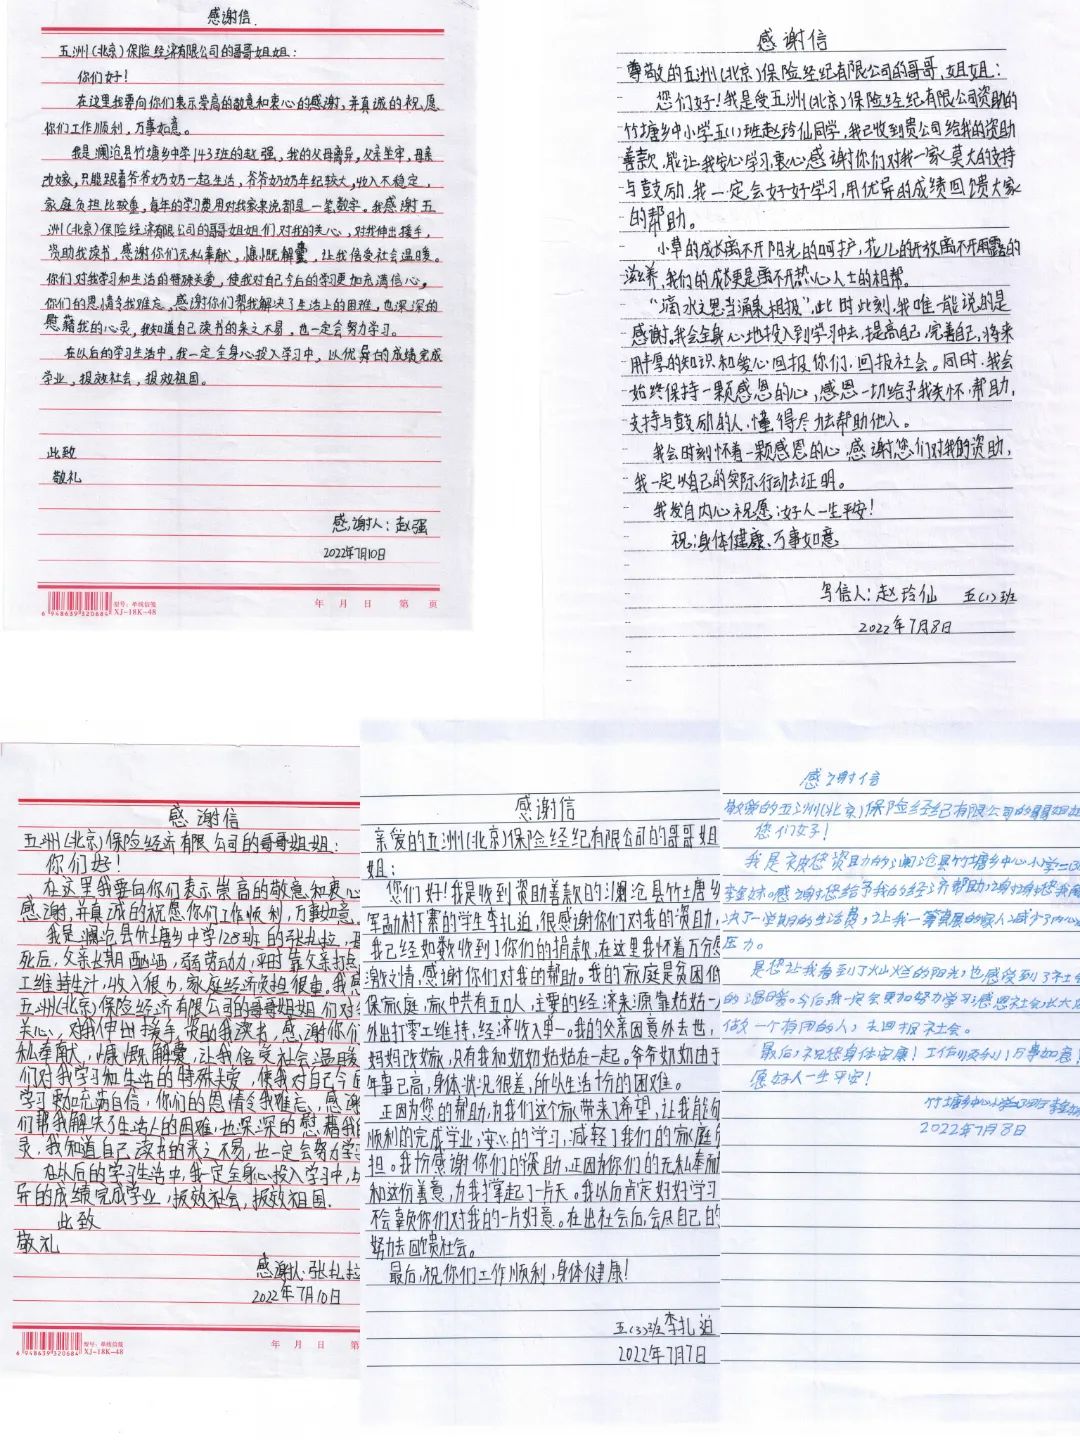 感谢信
五洲(北京)保险经济有限公司的哥哥姐姐：
你们好！
在这里我要向你们表示崇高的敬意和衷心的感谢，并真诚的祝愿
你们工作顺利，万事如意。
我是澜沧县竹塘乡中学143班的赵强，我的父母离异，父亲坐牢，母亲
改嫁，只能跟着爷爷奶奶一起生活，爷爷奶奶年纪较大，收入不稳定，
家庭负担比较重，每年的学习费用对我家来说都是一笔数字。我感谢五
洲(北京)保险经济有限公司的哥哥姐姐们对我的关心，对我伸出援手，
资助我读书，感谢你们无私奉献，慷慨解囊，让我倍受社会温暖。
你们对我学习和生活的特殊关爱，使我对自己今后的学习更加充满信心。
你们的恩情令我难忘，感谢你们帮我解决了生活上的困难，也深深的
慰藉我的心灵，我知道自己读书的来之不易，也一定会努力学习。
在以后的学习生活中，我一定全身心投入学习中，以优异的成绩完成
学业，报效社会，报效祖国。
此致
敬礼
感谢人：赵强
2022年7月10日
6 948639 320684
型号：单线信笺
XJ-18K-48
年 月 日 第 页
感谢信
尊敬的五洲(北京)保险经纪有限公司的哥哥，姐姐：
您们好！我是受五洲(北京)保险经纪有限公司资助的
竹塘乡中小学五(1)班赵玲仙同学，我已收到贵公司给我的资助
善款，能让我安心学习，衷心感谢你们对我一家莫大的支持
与鼓励。我一定会好好学习，用优异的成绩回馈大家
的帮助。
小草的成长离不开阳光的呵护，花儿的开放离不开雨露的
滋养，我们的成长更是离不开热心人士的相帮。
“滴水之恩当涌泉相报”，此时此刻，我唯一能说的是
感谢。我会全身心地投入到学习中去，提高自己，完善自己，将来
用丰厚的知识和爱心回报你们，回报社会。同时，我会
始终保持一颗感恩的心，感恩一切给予我关怀，帮助，
支持与鼓励的人，懂得尽力去帮助他人。
我会时刻怀着一颗感恩的心，感谢您们对我的资助，
我一定以自己的实际行动去证明。
我发自内心祝愿：好人一生平安！
祝：身体健康、万事如意
写信人：赵玲仙 五(1)班
2022年7月8日
感谢信
五洲(北京)保险经济有限公司的哥哥姐姐：
你们好！
在这里我要向你们表示崇高的敬意和衷心
感谢，并真诚的祝愿你们工作顺利，万事如意。
我是澜沧县竹塘乡中学128班的张扎拉，
死后，父亲长期酗酒，弱劳动力，平时靠父亲打点
工维持生计，收入很少，家庭经济负担很重。我感
五洲(北京)保险经济有限公司的哥哥姐姐们对
关心，对我伸出援手，资助我读书，感谢你们
私奉献，慷慨解囊，让我倍受社会温暖
们对我学习和生活的特殊关爱，使我对自己今
学习更加充满自信，你们的恩情令我难忘，感谢
们帮我解决了生活上的困难，也深深的慰藉我
灵，我知道自己读书的来之不易，也一定会努力学
在以后的学习生活中，我一定全身心投入学习中，
异的成绩完成学业，报效社会，报效祖国.
此致
敬礼
感谢人：张扎拉
2022年7月10日
6 948639 320684
型号：单线信笺
XJ-18K-48
年 月 日 第
感谢信
亲爱的五洲(北京)保险经纪有限公司的哥哥姐
姐：
您们好！我是收到资助善款的澜沧县竹塘乡
军劢村丁寨的学生李扎迫，很感谢你们对我的资助，
我已经如数收到了你们的捐款，在这里我怀着万分
激之情，感谢你们对我的帮助。我的家庭是贫困低
保家庭，家中共有五口人，主要的经济来源靠姑姑一
外出打零工维持，经济收入单一。我的父亲因意外去世，
妈妈改嫁，只有我和奶奶姑姑在一起。爷爷奶奶由于
年事已高，身体状况很差，所以生活十分的困难。
正因为您的帮助，为我们这个家带来了希望，让我能够
顺利的完成学业，安心的学习，减轻了我们的家庭
担。我十分感谢你们的资助，正因为你们的无私奉献
和这份善意，为我撑起了一片天。我以后肯定好好学习
不会辜负你们对我的一片好意。在出社会后，会尽自己的
努力去回馈社会。
最后，祝你们工作顺利，身体健康！
五(3)班 李扎迫
2022年7月7日
感谢信
敬爱的五洲(北京)保险经纪有限公司的哥哥姐姐
您们好！
我是被您资助的澜沧县竹塘乡中心小学
李金妹。感谢您给予我的经济帮助，谢谢您我解
决了一学期的生活费，让我一筹莫展的家人减少了内心
压力。
是您让我看到了灿烂的阳光，也感受到了社会
的温暖。今后，我一定会更加努力学习，感恩社会，长大
做一个有用的人，来回报社会。
最后，祝您身体安康！工作顺利！万事如意！
愿好人一生平安！
竹塘乡中心小学
2022年7月8日